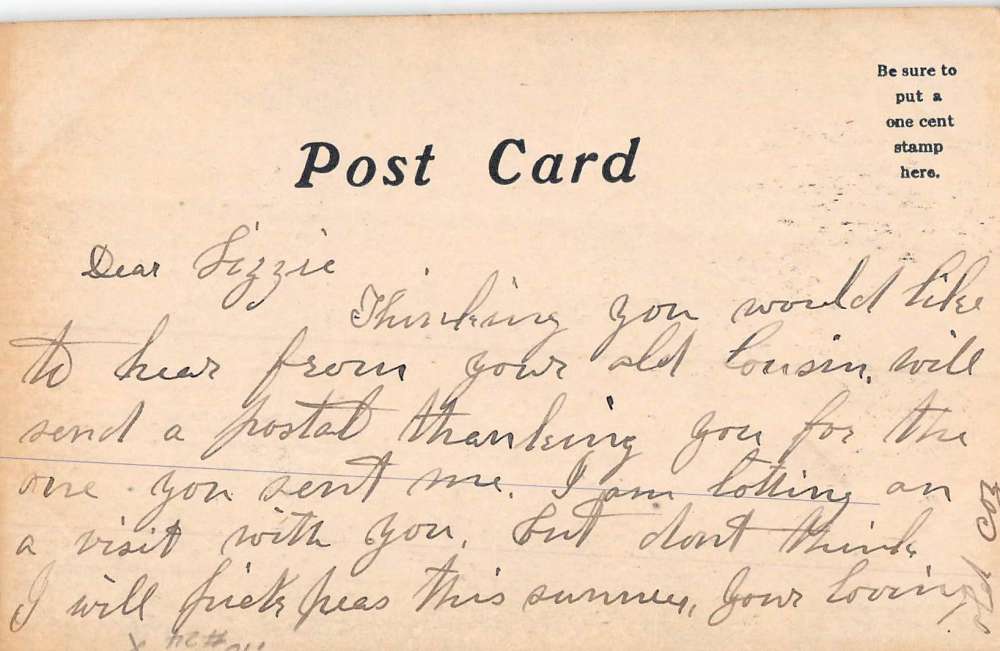 Be sure to
put a
one cent
stamp
here.
Post Card
Dear Lizzie
Thinking you would like
to hear from your old Cousin, will
send a postal thanking you for the
one you sent me. I am lotting on
a visit with you, but dont think
I will pick peas this summer, Your loving
old Coz
#24